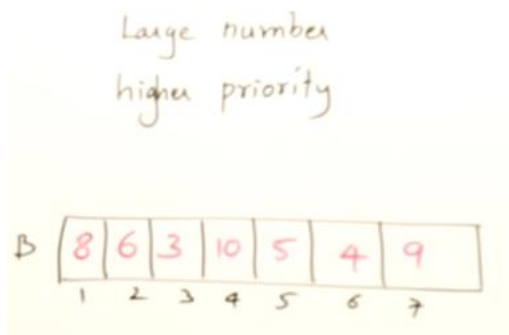 Large number
higher priority
B 8 6 3 10 5 4 9
1 2 3 4 5 6 7